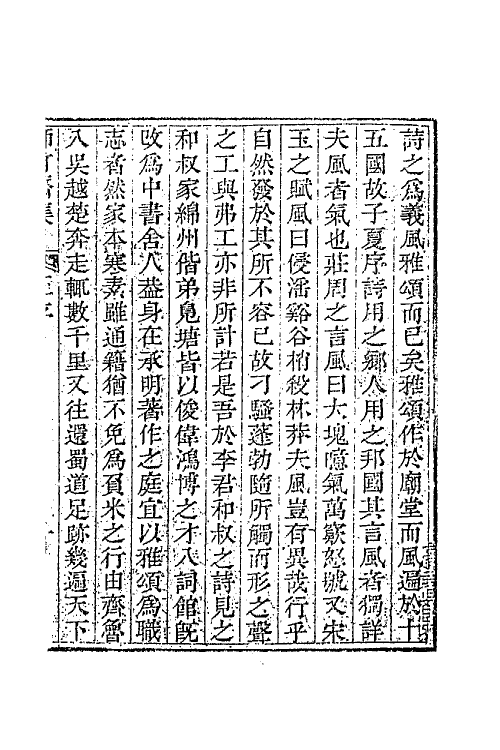 詩之為義風雅頌而已矣雅頌作於廟堂而風遍於十
五國故子夏序詩用之鄉人用之邦國其言風者獨詳
夫風者氣也莊周之言風曰大塊噫氣萬竅怒號又宋
玉之賦風曰侵潘谿谷梢殺林莽夫風豈有異哉行乎
自然發於其所不容已故刁騷蓬勃隨所觸而形之聲
之工與弗工亦非所計若是吾於李君和叔之詩見之
和叔家綿州偕弟鳧塘皆以俊偉鴻博之才入詞館旣
改為中書舍人益身在承明著作之庭宜以雅頌為職
志者然家本寒素雖通籍猶不免為負米之行由齊魯
入吳越楚奔走輒數千里又往還蜀道足跡幾遍天下
集 序 一